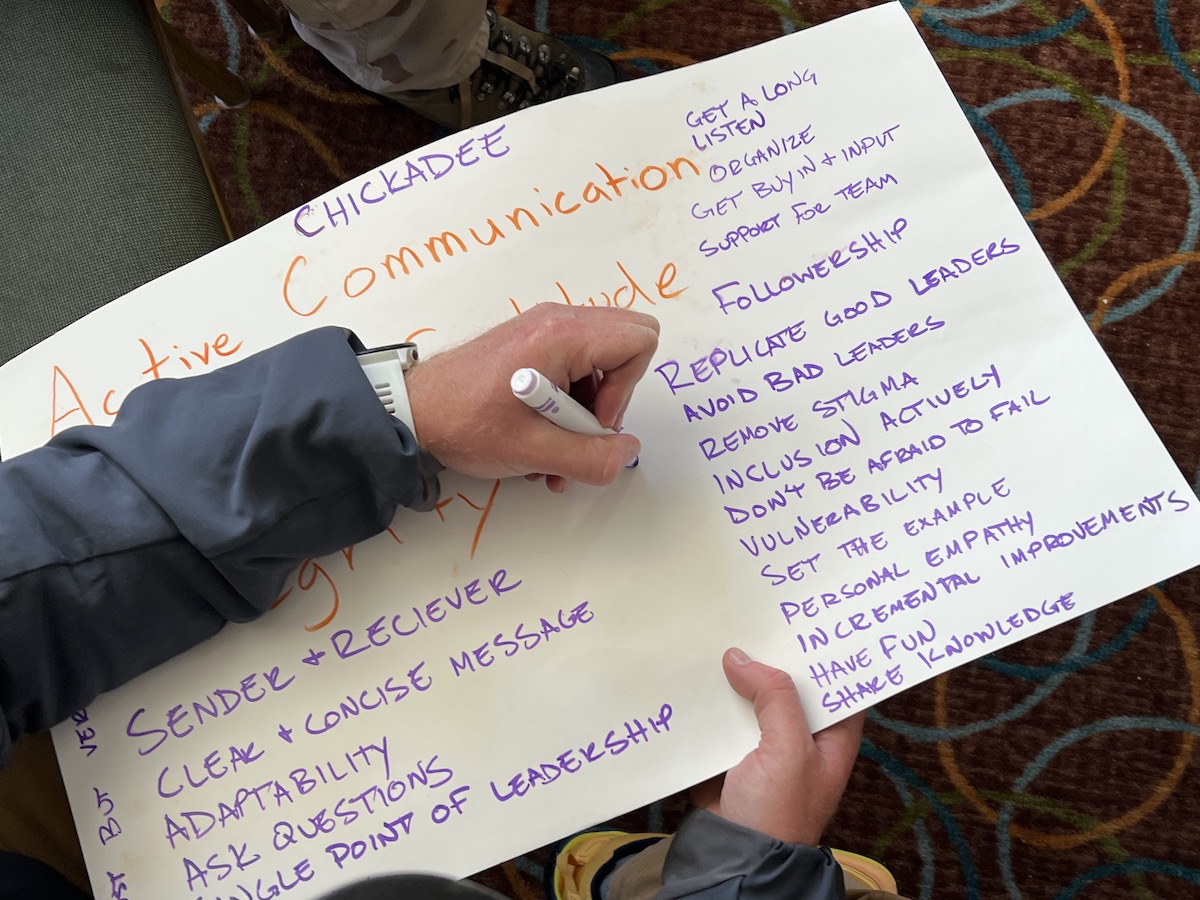 CHICKADEE
Communication
Active
SENDER + RECIEVER
CLEAR + CONCISE MESSAGE
ADAPTABILITY
ASK QUESTIONS
POINT OF LEADERSHIP
GET A LONG
LISTEN
ORGANIZE
GET BUY IN + INPUT
SUPPORT FOR TEAM
FOLLOWERSHIP
REPLICATE GOOD LEADERS
AVOID BAD LEADERS
REMOVE STIGMA
INCLUSION ACTIVELY
DON'T BE AFRAID TO FAIL
VULNERABILITY
SET THE EXAMPLE
PERSONAL EMPATHY
INCREMENTAL IMPROVEMENTS
HAVE FUN
SHARE KNOWLEDGE
BUT